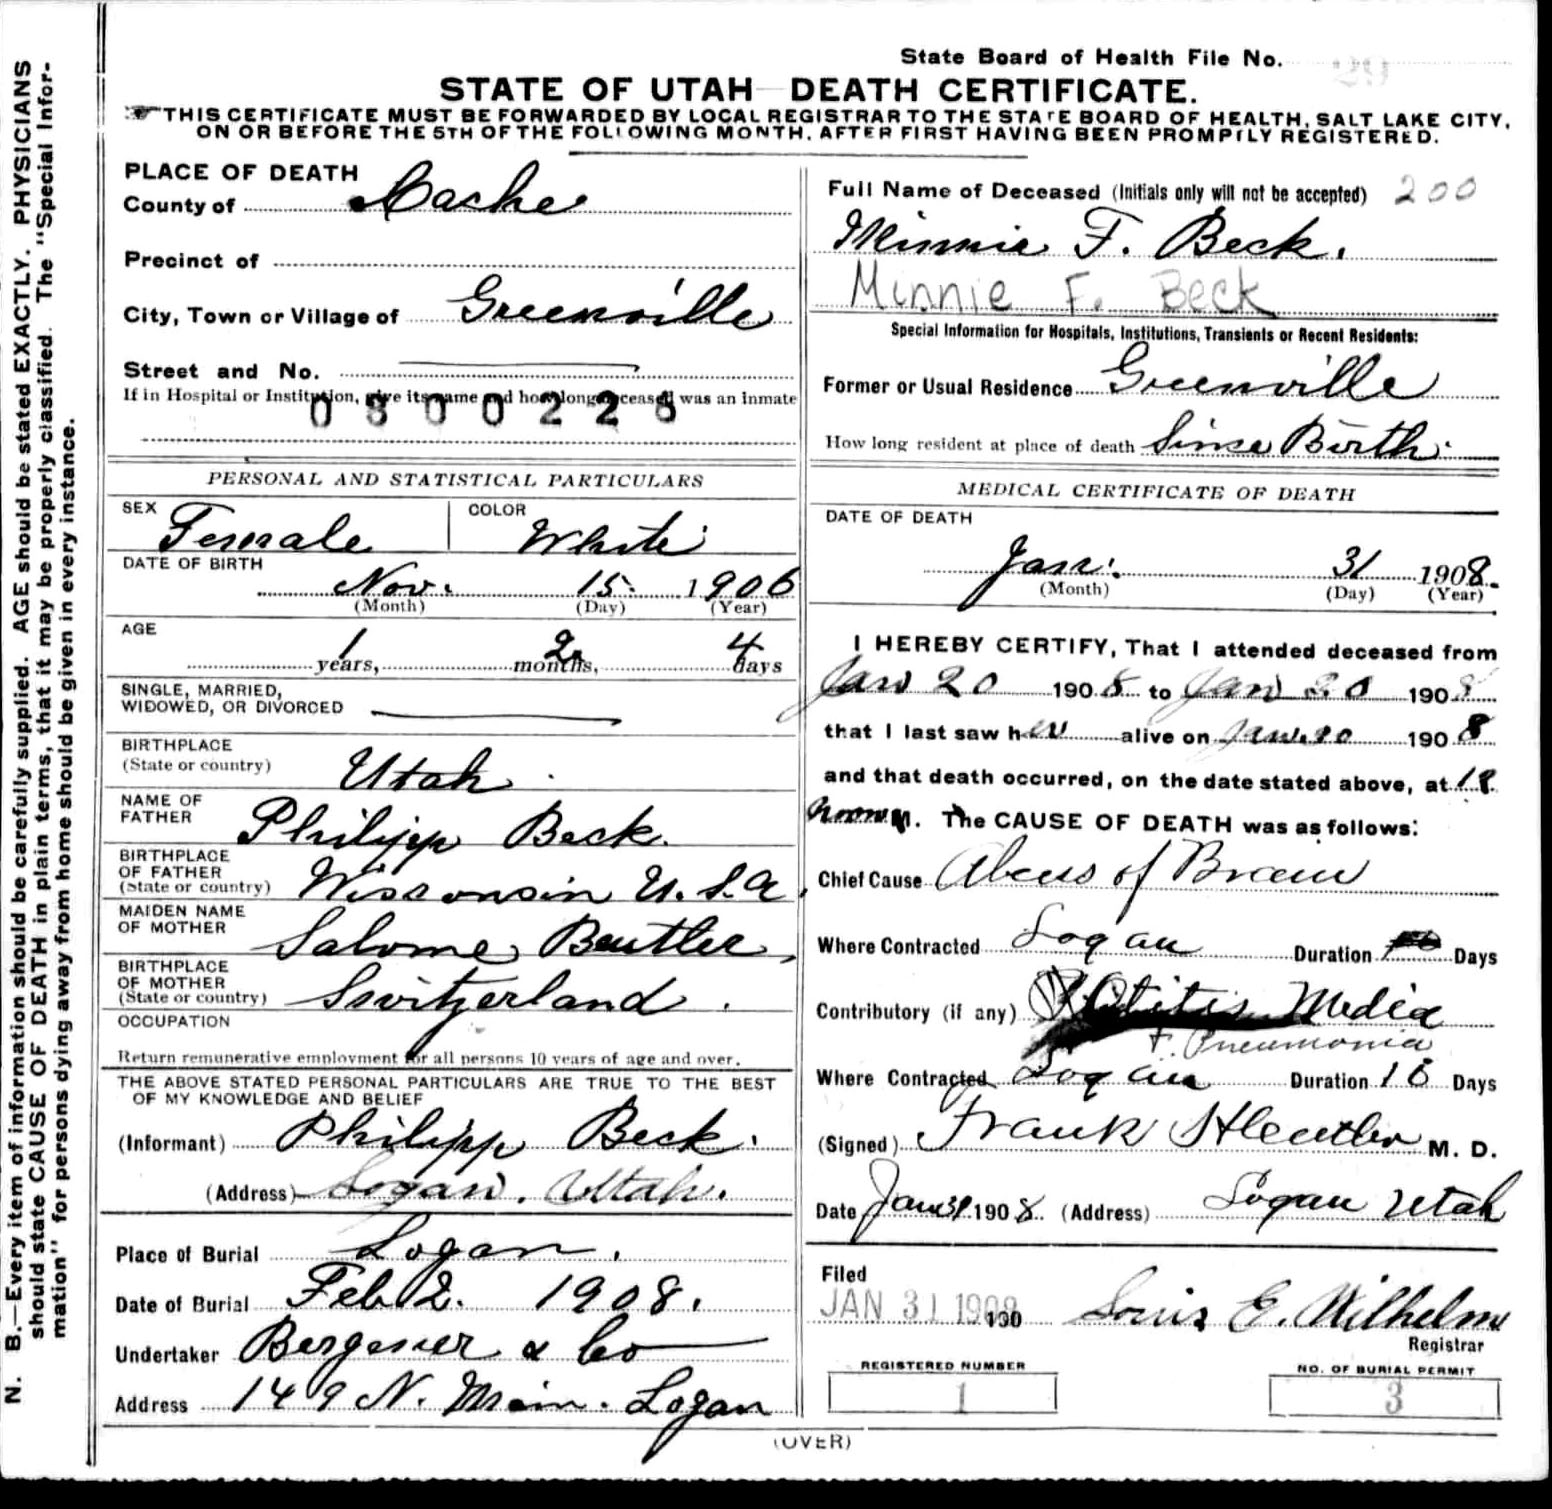 State Board of Health File No. 29
STATE OF UTAH—DEATH CERTIFICATE.
THIS CERTIFICATE MUST BE FORWARDED BY LOCAL REGISTRAR TO THE STATE BOARD OF HEALTH, SALT LAKE CITY,
ON OR BEFORE THE 5TH OF THE FOLLOWING MONTH, AFTER FIRST HAVING BEEN PROMPTLY REGISTERED.
N. B.—Every item of information should be carefully supplied. AGE should be stated EXACTLY. PHYSICIANS
should state CAUSE OF DEATH in plain terms, that it may be properly classified. The "Special Infor-
mation" for persons dying away from home should be given in every instance.
PLACE OF DEATH
County of Cache
Precinct of
City, Town or Village of Greenville
Street and No.
If in Hospital or Institution, give its name and how long deceased was an inmate
0800228
PERSONAL AND STATISTICAL PARTICULARS
SEX Female COLOR White
DATE OF BIRTH
Nov. 15. 1906
(Month) (Day) (Year)
AGE
1 years, 2 months, 4 days
SINGLE, MARRIED,
WIDOWED, OR DIVORCED
BIRTHPLACE
(State or country) Utah
NAME OF
FATHER Philipp Beck.
BIRTHPLACE
OF FATHER
(State or country) Wisconsin U.S.A.
MAIDEN NAME
OF MOTHER Salome Beutler,
BIRTHPLACE
OF MOTHER
(State or country) Switzerland.
OCCUPATION
Return remunerative employment for all persons 10 years of age and over.
THE ABOVE STATED PERSONAL PARTICULARS ARE TRUE TO THE BEST
OF MY KNOWLEDGE AND BELIEF
(Informant) Philipp Beck.
(Address) Logan, Utah.
Place of Burial Logan.
Date of Burial Feb 2. 1908.
Undertaker & Co
Address 149 N. Main. Logan
Full Name of Deceased (Initials only will not be accepted) 200
Minnie F. Beck.
Minnie F. Beck
Special Information for Hospitals, Institutions, Transients or Recent Residents:
Former or Usual Residence Greenville
How long resident at place of death Since Birth.
MEDICAL CERTIFICATE OF DEATH
DATE OF DEATH
Jan. 31 1908.
(Month) (Day) (Year)
I HEREBY CERTIFY, That I attended deceased from
Jan 20 1908 to Jan 1908
that I last saw her alive on Jan. 1908
and that death occurred, on the date stated above, at 12
noon M. The CAUSE OF DEATH was as follows:
Chief Cause Abcess of Brain
Where Contracted Logan Duration Days
Contributory (if any) Otitis Media
+ Pneumonia
Where Contracted Logan Duration 18 Days
(Signed) Frank M. D.
Date Jan 31 1908. (Address) Logan Utah
Filed
JAN 31 1908 190 Louis E. Wilhelm
Registrar
REGISTERED NUMBER
1
NO. OF BURIAL PERMIT
3
(OVER)